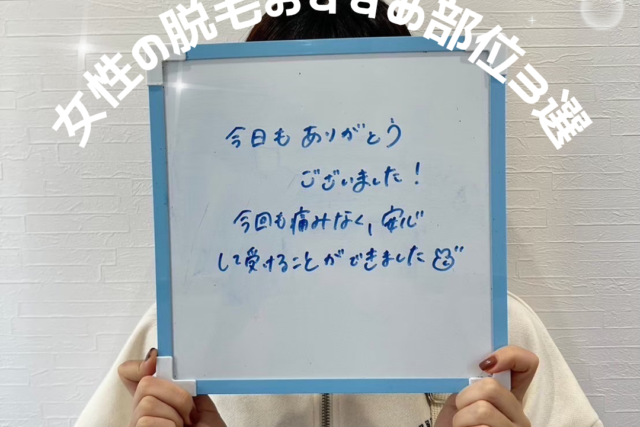 女性の脱毛おすすめ部位3選
今日もありがとう
ございました!
今回も痛みなく、安心
して受けることができました